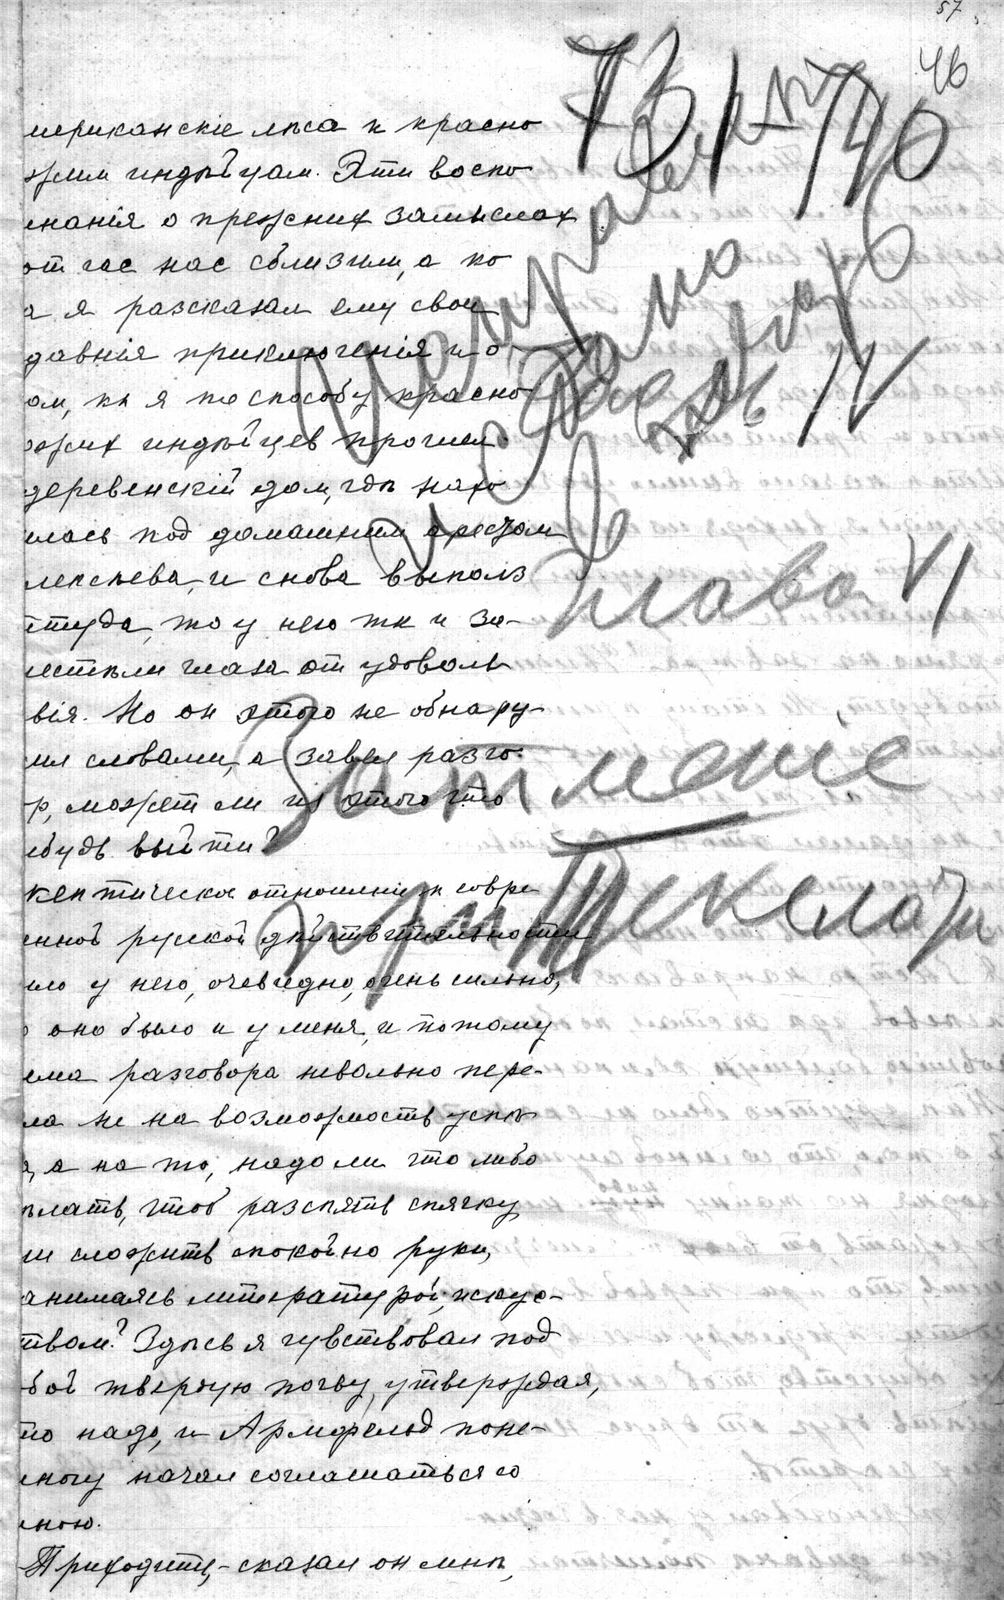 57
46
мериканскіе лѣса к красно
жим индѣйцам. Эти воспо
инанія о прежних замыслах
от час нас сблизили, а ко
а я разсказал ему свои
давнія приключенія и о
ом, кк я по способу красно
ожих индѣйцев прочшел
деревенскій дом, гдѣ нахо
илась под домашним арестом
лексѣева, и снова выполз
ттуда, то у него тк и за-
лестѣли глаза от удоволь
вія. Но он этого не обнару-
ил словами, а завел разго-
р, может ли из этого что
ибудь выйти?
кептическое отношеніе к совре
енной русской дѣйствительности
ыло у него, очевидно, очень сильно,
о оно было и у меня, и потому
ема разговора невольно пере-
ла не на возможность успѣ
а, а на то, надо ли что либо
ѣлать, чтоб разсѣять спячку
ли сложить спокойно руки,
анимаясь литературой, искус-
твом? Здѣсь я чувствовал под
бой твердую почву, утверждая,
то надо, и Армфельд поне-
многу начал соглашаться со
мною.
- Приходите, - сказал он мнѣ,
73
1
740
Глава VI
Затменіе
при Текелази